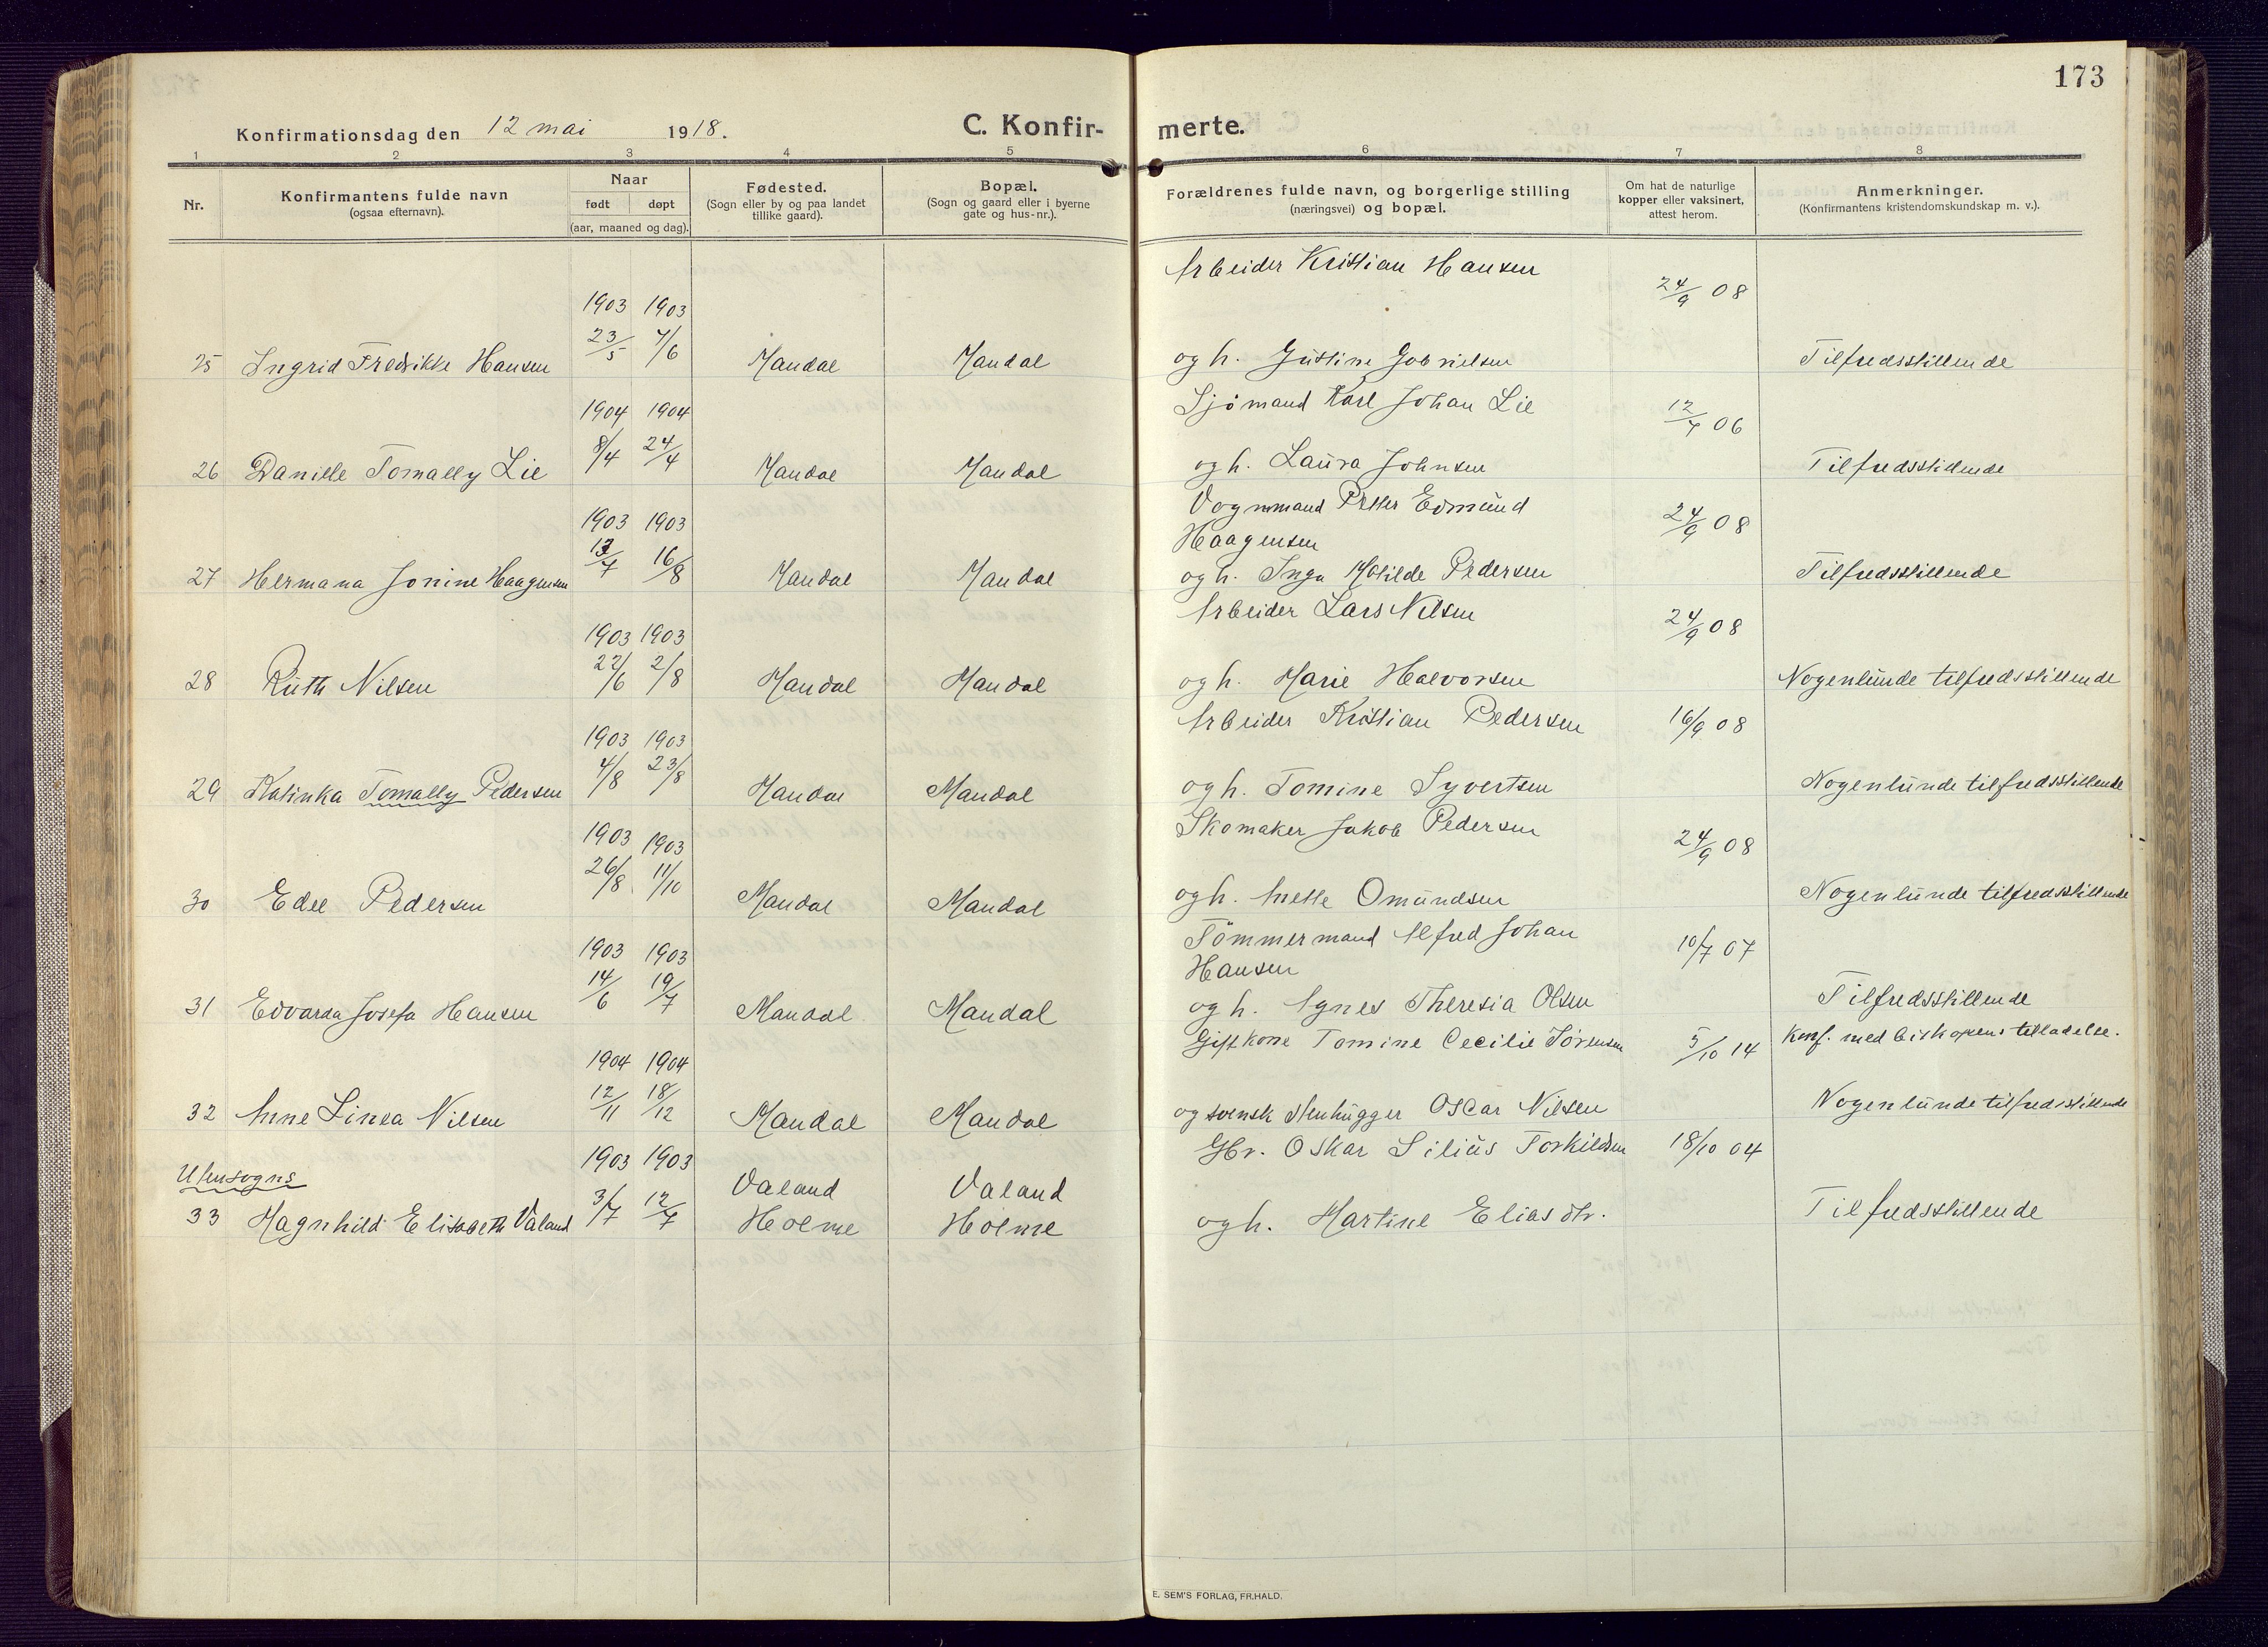 173
Konfirmationsdag den 12 mai 1918. C. Konfir- merte.
1 2 3 4 5 6 7 8
Nr.
Konfirmantens fulde navn
(ogsaa efternavn).
Naar
født døpt
(aar, maaned og dag).
Fødested.
(Sogn eller by og paa landet
tillike gaard).
Bopæl.
(Sogn og gaard eller i byerne
gate og hus-nr.).
Forældrenes fulde navn, og borgerlige stilling
(næringsvei) og bopæl.
Om hat de naturlige
kopper eller vaksinert,
attest herom.
Anmerkninger.
(Konfirmantens kristendomskundskap m. v.).
Arbeider Kristian Hansen
24/9 08
1903 1903
23/5 7/6
25 Ingrid Fredrikke Hansen Mandal Mandal og h. Gustine Gabrielsen Tilfredsstillende
1904 1904 Sjømand Karl Johan Lie
8/4 24/4 12/7 06
26 Danille Tomally Lie Mandal Mandal og h. Laura Johnsen Tilfredsstillende
1903 1903 Vognmand Petter Edmund 24/9 08
Haagensen
13/7 16/8
27 Hermana Jonine Haagensen Mandal Mandal og h. Inga Matilde Pedersen Tilfredsstillende
Arbeider Lars Nilsen
1903 1903 24/9 08
22/6 2/8
28 Ruth Nilsen Mandal Mandal og h. Marie Halvorsen Nogenlunde tilfredsstillende
1903 1903 Arbeider Kristian Pedersen 16/9 08
4/8 23/8
29 Kalinka Tomally Pedersen Mandal Mandal og h. Tomine Syvertsen Nogenlunde tilfredsstillende
1903 1903 Skomaker Jakob Pedersen 24/9 08
26/8 11/10
30 Edel Pedersen Mandal Mandal og h. Mette Omundsen Nogenlunde tilfredsstillende
1903 1903 Tømmermand Alfred Johan 10/7 07
Hansen
14/6 19/7
31 Edvarda Josefa Hansen Mandal Mandal og h. Agnes Theresia Olsen Tilfredsstillende
1904 1904 Gift kone Tomine Cecilie Tørensen 5/10 14 Konf. med biskopens tilladelse.
12/11 18/12
32 Anne Linea Nilsen Mandal Mandal og svensk stenhugger Oscar Nilsen Nogenlunde tilfredsstillende
1903 1903 Gbr. Oskar Silius Torkildsen 18/10 04
Utensogns
3/7 12/7 Valand Valand
33 Magnhild Elisabeth Valand Holme Holme og h. Martine Eliasdtr. Tilfredsstillende
E. SEM'S FORLAG, FR.HALD.